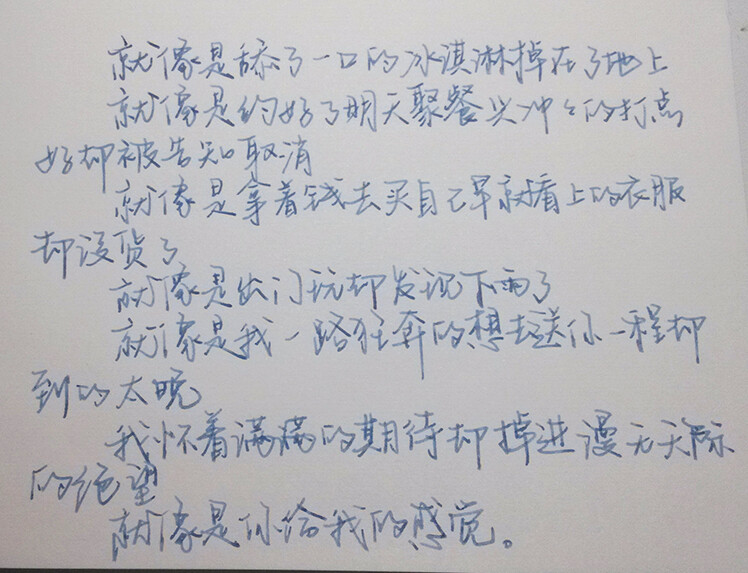 就像是舔了一口的冰淇淋掉在了地上
就像是约好了明天聚餐兴冲冲的打点
好却被告知取消
就像是拿着钱去买自己早就看上的衣服
却没货了
就像是出门玩却发现下雨了
就像是我一路狂奔的想去送你一程却
到的太晚
我怀着满满的期待却掉进漫无天际
的绝望
就像是你给我的感觉。